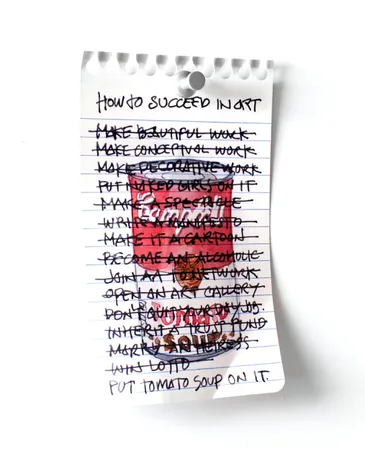 HOW TO SUCCEED IN ART
MAKE BEAUTIFUL WORK
MAKE CONCEPTUAL WORK
MAKE DECORATIVE WORK
PUT NAKED GIRLS ON IT
MAKE A SPECTACLE
WRITE A MANIFESTO
MAKE IT A CARTOON
BECOME AN ALCOHOLIC
JOIN AA TO NETWORK
OPEN AN ART GALLERY
DON'T QUIT YOUR DAY JOB.
INHERIT A TRUST FUND
MARRY AN HEIRESS
WIN LOTTO
PUT TOMATO SOUP ON IT.
Campbell's
Tomato
SOUP